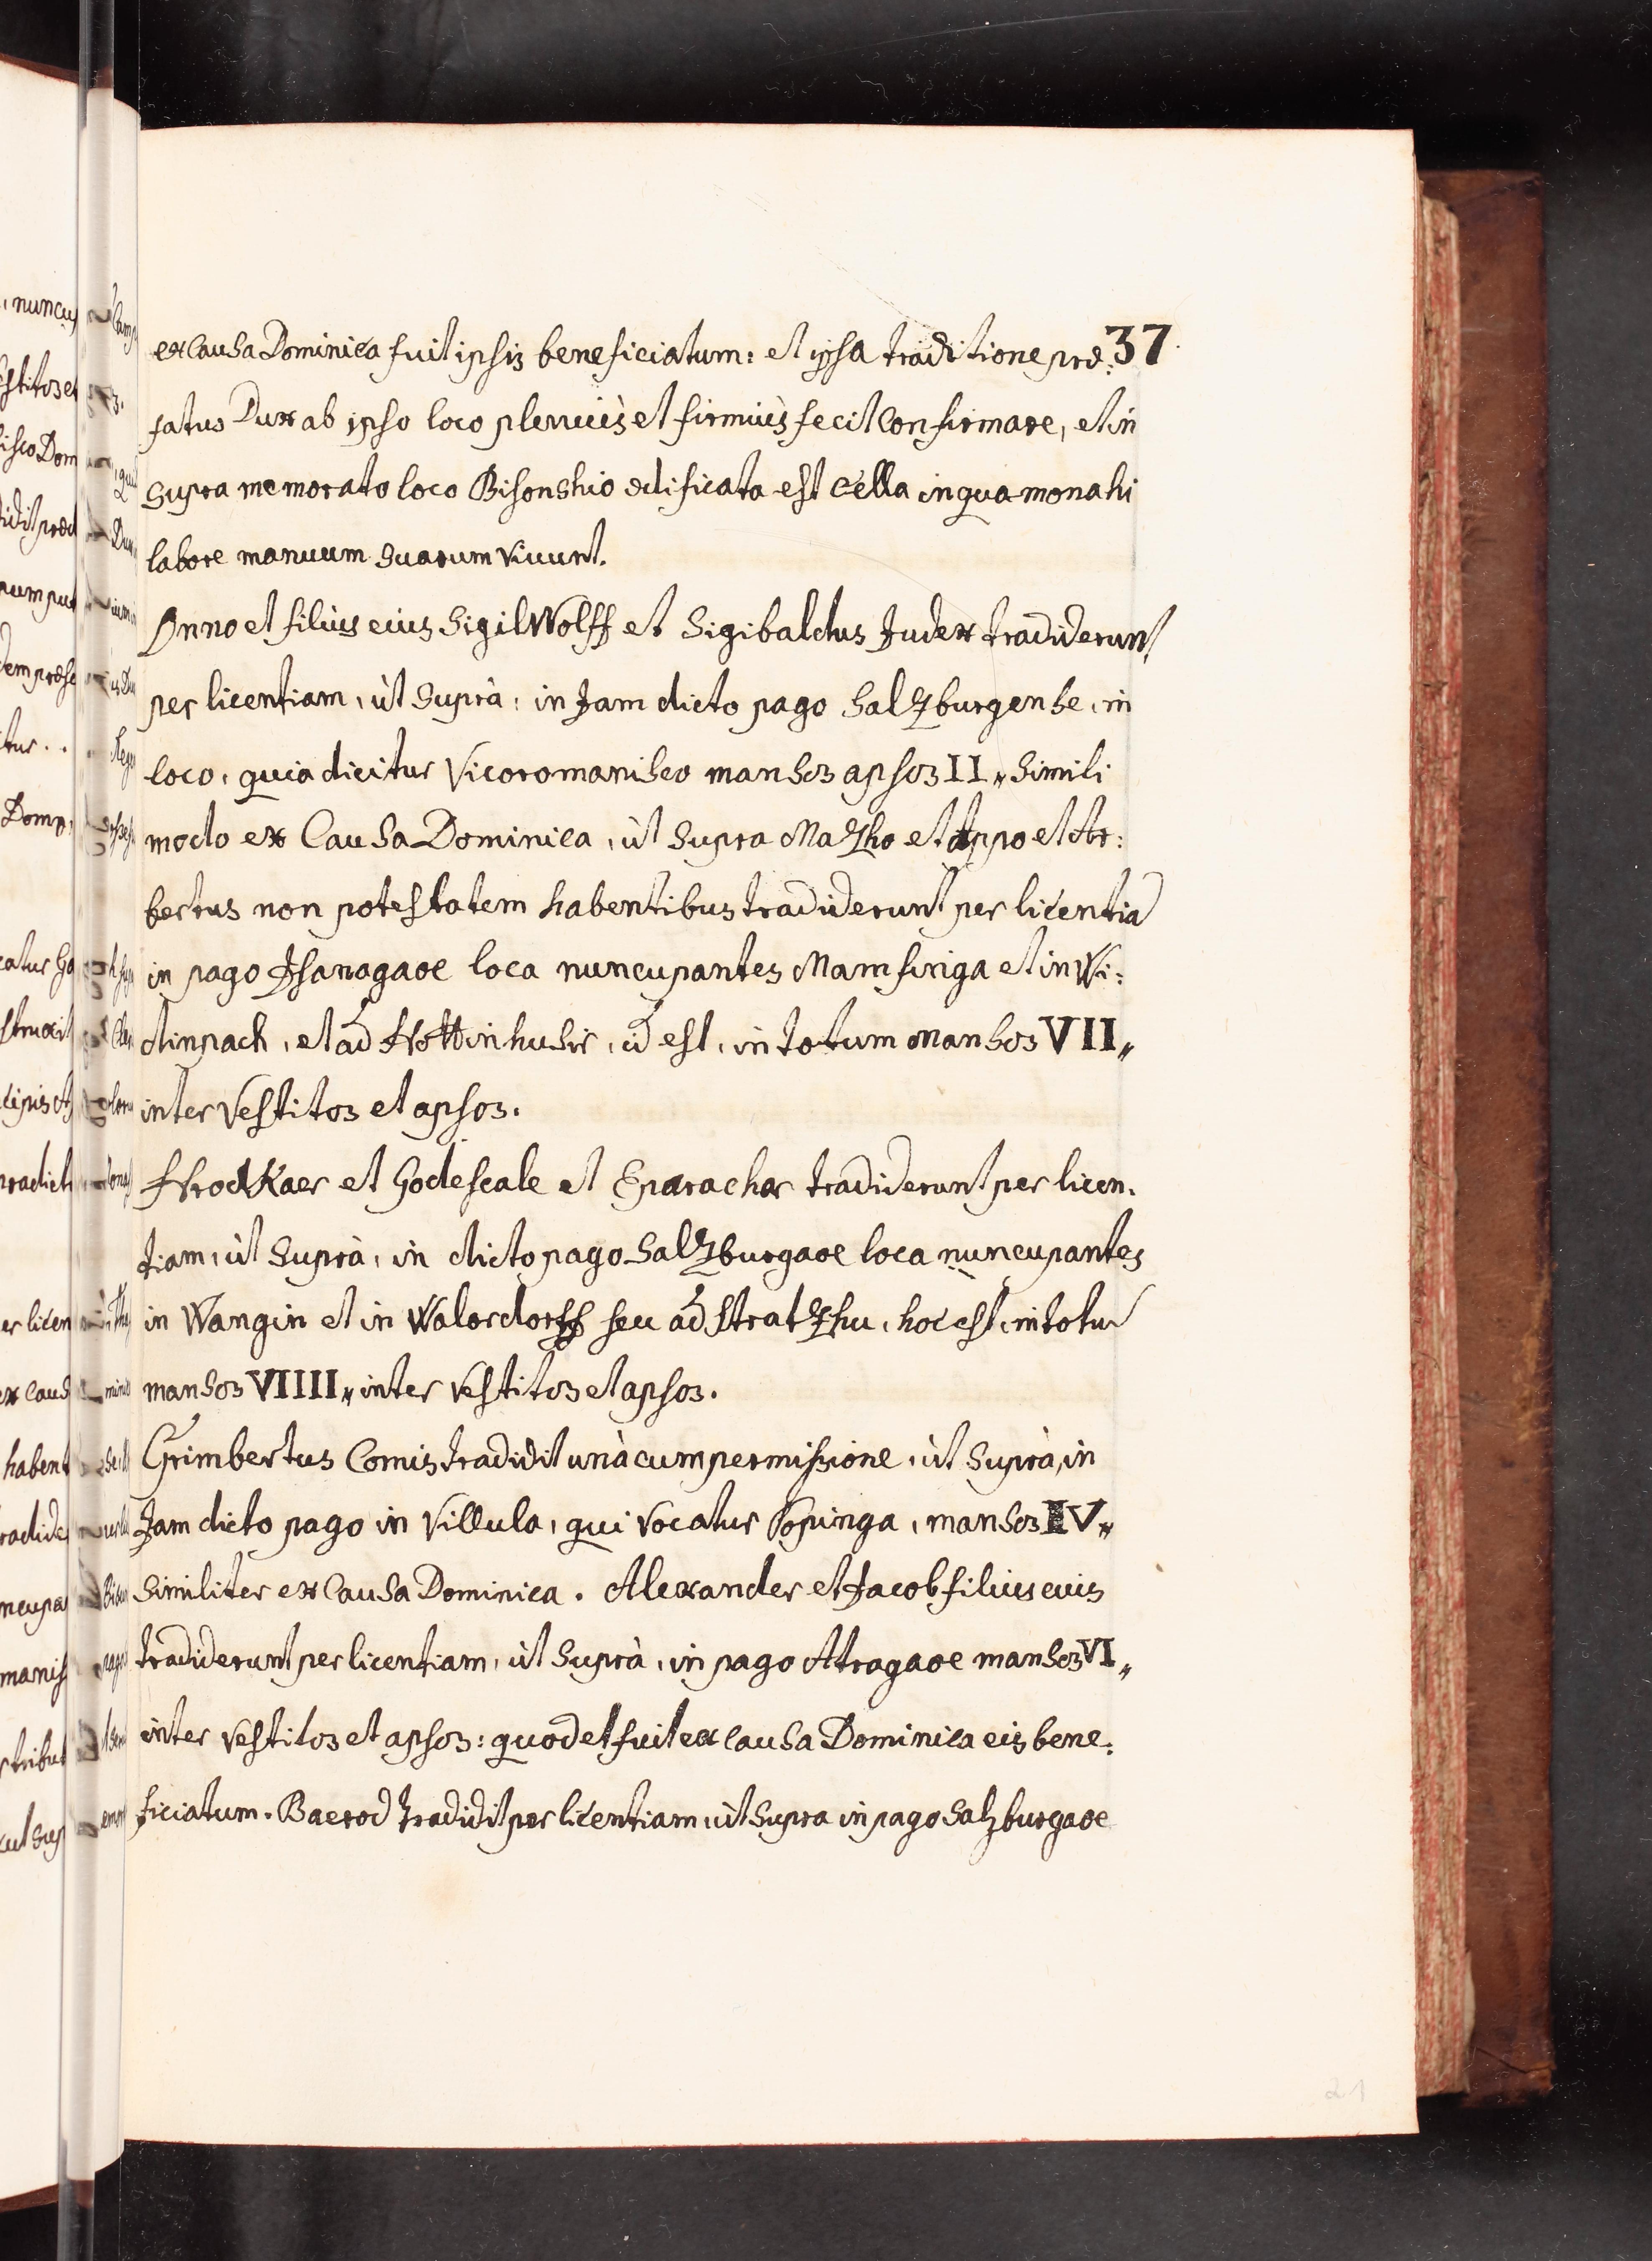 37
ex Causa Dominica fuit ipsis beneficiatum: et ipsa traditione præ:
fatus Dux ab ipso loco pleniùs et firmiùs fecit Confirmare, et in
supra memorato loco Bisonshio ædificata est Cella in qua monahi
labore manuum suarum Vivunt.
Onno et filius eius SigilWolff et Sigibaldus Judex tradiderunt
per licentiam, ùt Suprà, in Jam dicto pago Salzburgense, in
loco, quia dicitur Vicoromanisco mansos apsos II„ Simili
modo ex Causa Dominica, ùt supra Mazho et Appo et Ar:
bertus non potestatem habentibus tradiderunt per licentia
in pago Isanagaoe loca nuncupantes Mamsinga et in Wi:
dinpach, et ad Hottinhusir, id est, in totum Mansos VII„
inter Vestitos et apsos.
HrodKaer et Godescale et Eparachar tradiderunt per licen:
tiam, ùt Suprà, in dicto pago Salzburgaoe loca nuncupantes
in Wangin et in Walardorff seu ad Stratzhu, hoc est, in totu
mansos VIIII„ inter Vestitos et apsos.
Grimbertus Comis tradidit unà cum permissione, ùt Suprà, in
Jam dicto pago in Villula, qui Vocatur Popinga, mansos IV„
Similiter ex Causa Dominica. Alexander et Jacob filius euis
tradiderunt per licentiam, ùt Suprà, in pago Atragaoe mansos VI„
inter Vestitos et apsos: quod et fuit ex Causa Dominica eis bene:
ficiatum. Baerod tradidit per licentiam, ùt Supra in pago Salzburgaoe
21